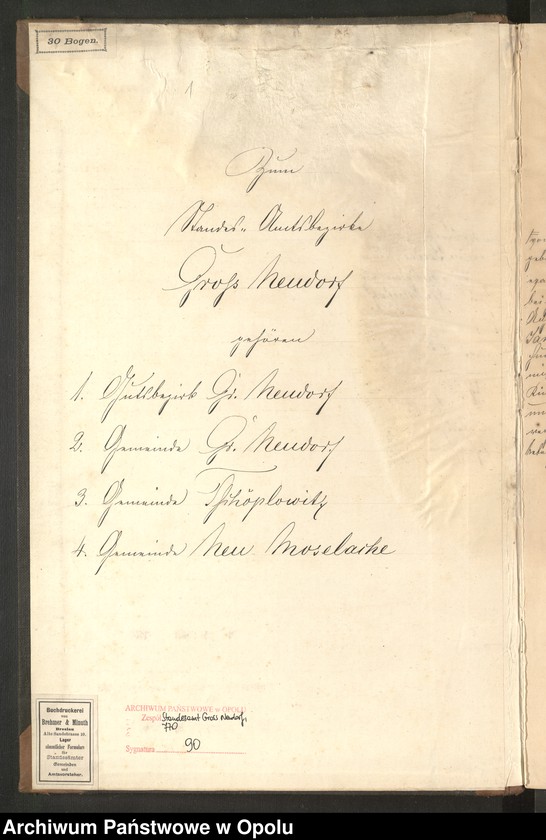 30 Bogen.
1
Zum
Standes-Amtsbezirke
Gross Neudorf
gehören
1. Gutsbezirk Gr. Neudorf
2. Gemeinde Gr. Neudorf
3. Gemeinde Tschöplowitz
4. Gemeinde Neu Moselache
Buchdruckerei
von
Brehmer & Minuth
Breslau
Alte-Sandstrasse 10.
Lager
sämmtlicher Formulare
für
Standesämter
Gemeinden
und
Amtsvorsteher.
ARCHIWUM PAŃSTWOWE w OPOLU
Zespół Standesamt Gross Neudorf,
770
Sygnatura 90
Archiwum Państwowe w Opolu